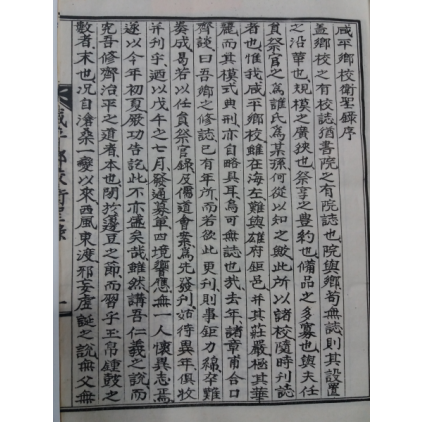 咸平鄕校衛聖錄序
盖鄕校之有校誌猶書院之有院誌也院與鄕苟無誌則其設置
之沿革也規模之廣狹也祭享之豊約也備品之多寡也與夫任
員祭官之爲誰氏爲某孫何從以知之歟此所以諸校隨時刊誌
者也惟我咸平鄕校雖在海左難與雄府鉅邑幷其莊嚴極其華
麗而其模式典刑亦自略具耳烏可無誌也哉去年諸章甫合口
齊談曰吾鄕之修誌已有年所而若欲此更刊則事鉅力綿卒難
奏成曷若以任員祭官錄及儒道會案爲先發刊姑待異年俱牧
幷刊乎迺以戊午之七月發通募單四境響應無一人懷異志焉
遂以今年初夏厥功告訖此不亦盛矣哉雖然講吾仁義之說而
究吾修齊治平之道者本也閑於籩豆之節而習乎玉帛鍾鼓之
數者末也况自滄桑一變以來西風東渡邪妄虛誕之說無父無
咸平鄕校衛聖錄 一